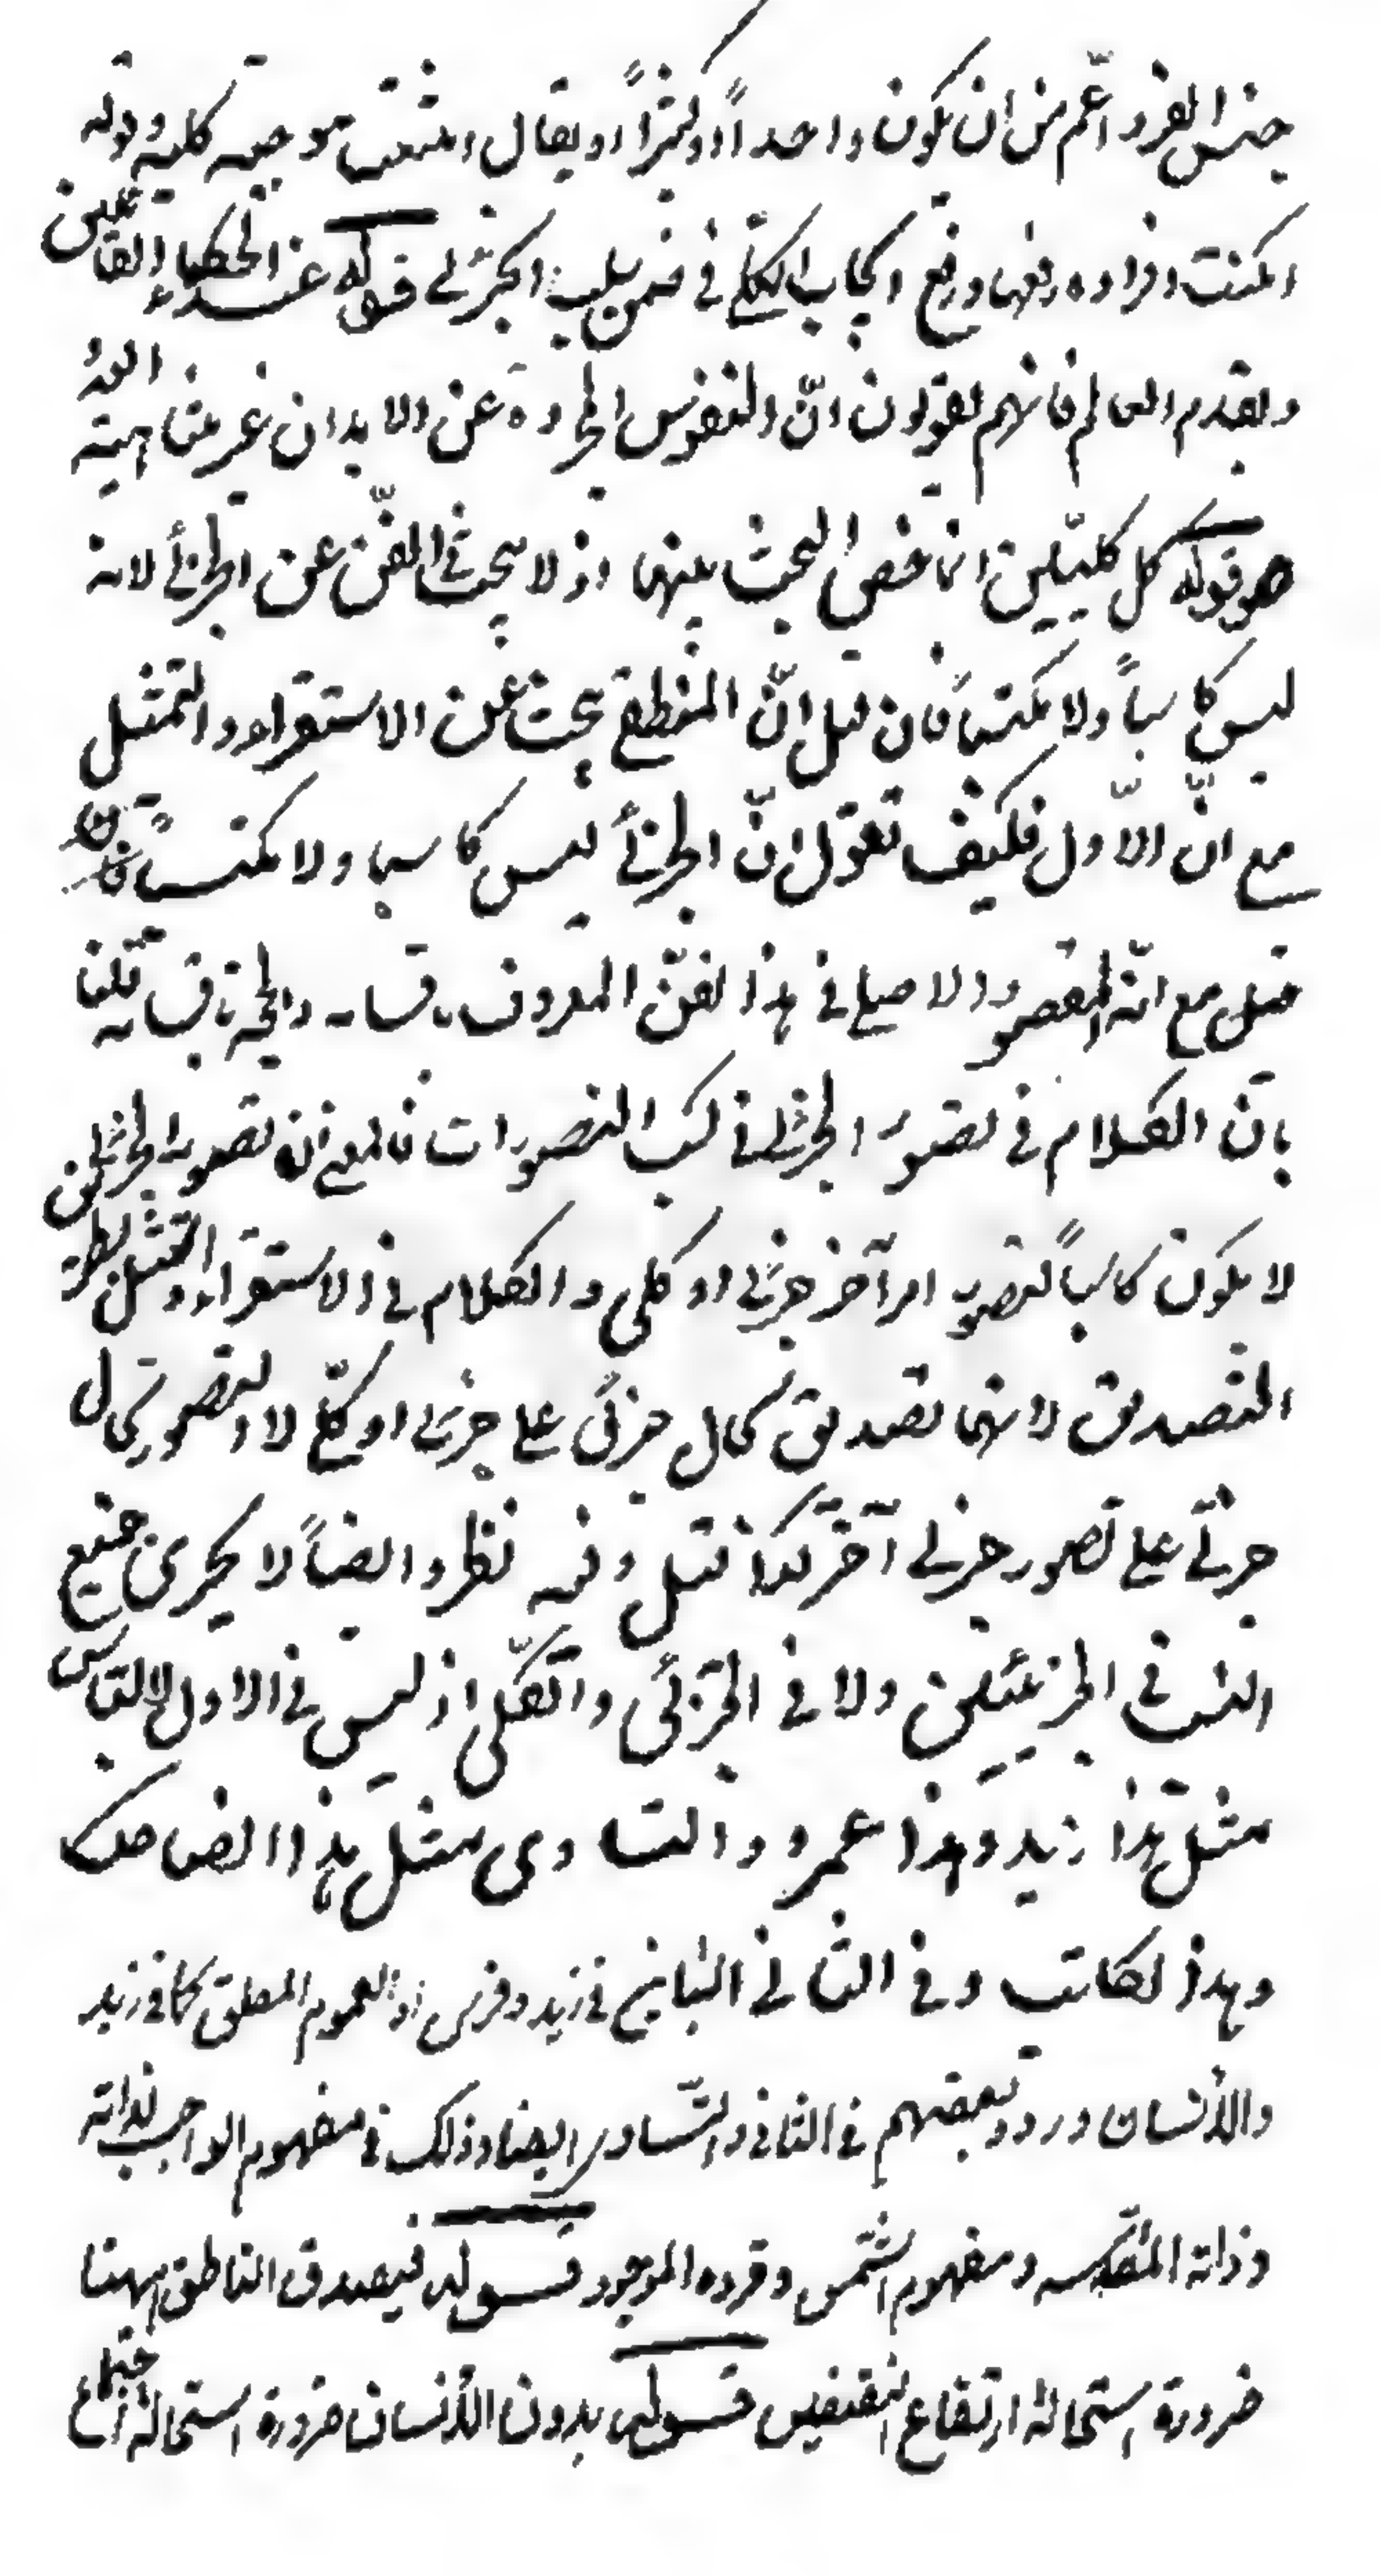 جنس الفرد اعّم من ان يكون واحداً او كثيراً او يقال امتنعت موجبه كليه وقوله
امكنت افراده رفعها ورفع ايجاب الكلّي في ضمن سلب الجزئى قوله عند الحكماء القائلين
وبقدم العالم فانهم يقولون انّ النفوس المجرده عن الابدان غير متناهية
قوله كل كليّين انما خص البحث بينهما اذ لا يبحث فى الفّن عن الجزئى لانه
ليس كاسباً ولا مكتسباً فان قيل انّ المنطقى يبحث عن الاستقراء والتمثيل
مع انّ الاّول فكيف تقول انّ الجزئى ليس كاسبا ولا مكتسباً
قيل مع انّه المقصود الاصلى فى هذا الفّن المعروف باقسامه والحجة باقسامه قلنا
بان الكلام فى تصور الجزئى فى كسب التصورات فالمعنى ان تصور الجزئى
لا يكون كاسباً لتصور امر آخر جزئى او كلى والكلام فى الاستقراء والتمثيل
التصديق لانهما تصديق بحال جزئى على جزئى او كلّى لا التصور بحال
جزئى على تصور جزئى آخر كذا قيل وفيه نظر وايضاً لا يجرى جميع
النسب فى الجزئيين ولا فى الجزئى والكلى اذ ليس فى الاول الا التباين
مثل هذا زيد وهذا عمرو والتساوى مثل هذا الضاحك
وهذا الكاتب وفى الثانى التباين فى زيد وفرس او العموم المطلق كما فى زيد
والانسان وردد بعضهم فى الثانى والتّساوى ايضا وذلك فى مفهوم الواجب لذاته
وذاته المقدسه ومفهوم الشمس وفرده الموجود قوله فيصدق الناطق ههنا
ضرورة استحالة ارتفاع النقيضين قوله بدون الانسان ضرورة استحالة اجتماع